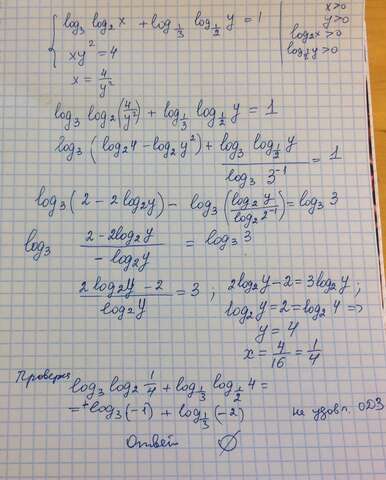 { log₃ log₂ x + log_{1/3} log_{1/2} y = 1 | x>0
xy² = 4 | y>0
x = 4/y² | log₂x>0
log_{1/2} y>0
log₃ log₂ (4/y²) + log_{1/3} log_{1/2} y = 1
log₃ (log₂4 - log₂y²) + (log₃ log_{1/2} y)/(log₃ 3⁻¹) = 1
log₃ (2 - 2log₂y) - log₃ (log₂y / log₂2⁻¹) = log₃ 3
log₃ (2-2log₂y)/(-log₂y) = log₃ 3
(2log₂y-2)/(log₂y) = 3 ; 2log₂y-2=3log₂y ;
log₂y=2=log₂4 =>
y=4
x = 4/16 = 1/4
Проверка log₃ log₂ 1/4 + log_{1/3} log_{1/2} 4 =
= log₃(-1) + log_{1/3}(-2) не удовл. ОДЗ
Ответ ∅